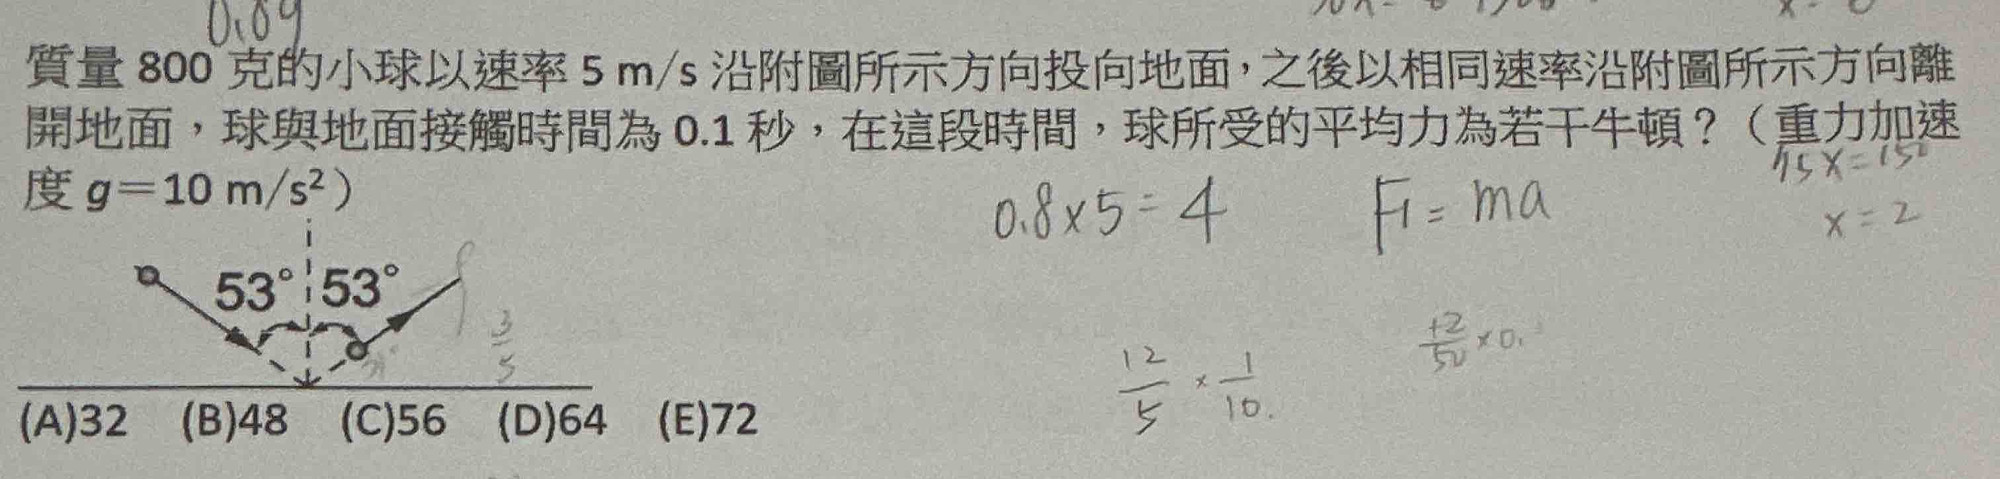 0.89
質量 800 克的小球以速率 5 m/s 沿附圖所示方向投向地面，之後以相同速率沿附圖所示方向離
開地面，球與地面接觸時間為 0.1 秒，在這段時間，球所受的平均力為若干牛頓？（重力加速
度 g＝10 m/s²）
75x=150
x=2
0.8×5=4
F=ma
53° 53°
3/5
12/5 × 1/10.
12/50 ×0.
(A)32 (B)48 (C)56 (D)64 (E)72